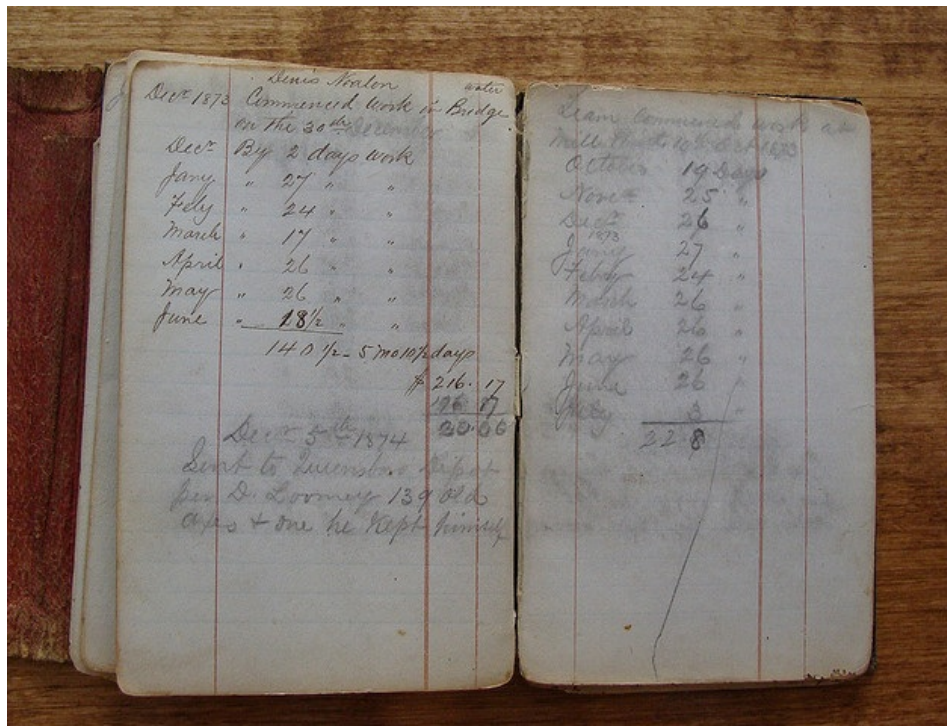 Denis Noalon
water
Decr 1873 Commenced work in Bridge
on the 30th December
Decr By 2 days work
Jany " 27 " "
Feby " 24 " "
March " 17 " "
April " 26 " "
May " 26 " "
June " 18½ " "
140½ - 5 mo 10½ days
$ 216.17
196 17
20.00
Decr 5th 1874
Sent to Queensboro Depot
per D. Loomey 139 old
axes + one he Kept himself
Team Commenced work at
Mill 10th Oct 1873
October 19 Days
Novr 25 "
Decr 26 "
1873
Jany 27 "
Feby 24 "
March 26 "
April 26 "
May 26 "
June 26 "
July 3 "
228